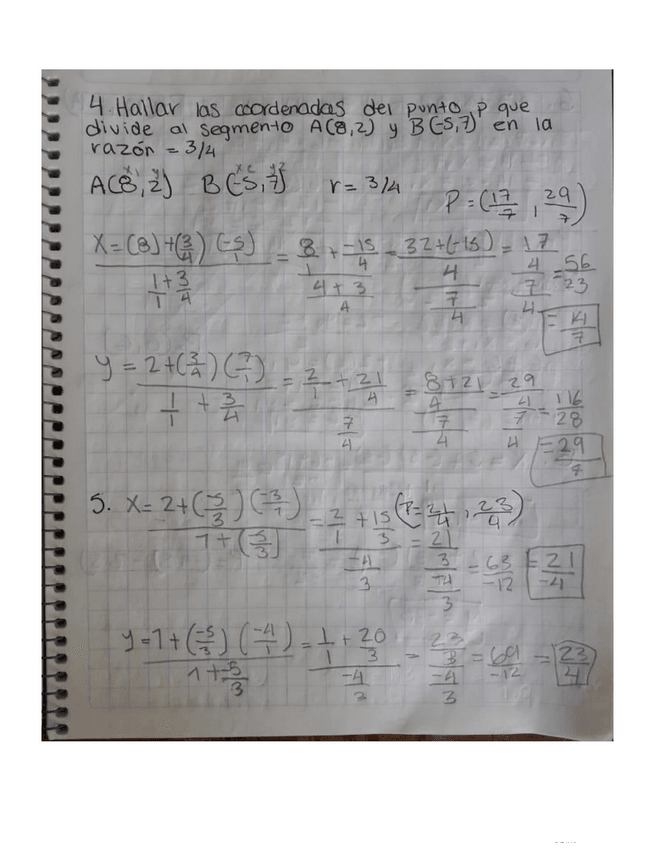 4. Hallar las coordenadas del punto p que
divide al segmento A(8,2) y B(-5,7) en la
razón = 3/4
A(8,2) B(-5,7) r = 3/4 P = (17/7 , 29/7)
X = (8) + (3/4) (-5/1) / 1/1 + 3/4 = 8/1 + -15/4 / 4+3/4 = 32+(-15)/4 / 7/4 = 17/4 / 7/4 = 56/23
= 14/7
y = 2+(3/4)(7/1) / 1/1 + 3/4 = 2/1 + 21/4 / 7/4 = 8+21/4 / 7/4 = 29/4 / 7/4 = 116/28
= 29/7
5. X = 2+(-5/3)(-3/1) / 1+(-5/3) = 2/1 + 15/3 / -4/3 = 21/3 / -4/3 = 63/-12 = 21/-4
(P = 21/4 , 23/4)
y = 1+(-5/3)(-4/1) / 1+-5/3 = 1/1 + 20/3 / -4/3 = 23/3 / -4/3 = 69/-12 = 23/4